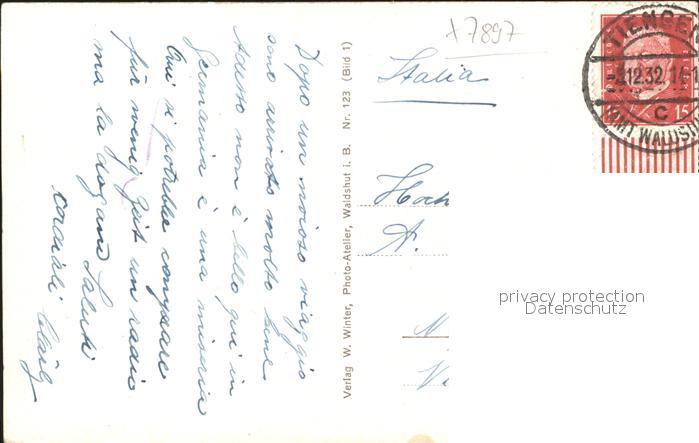 Dopo un noioso viaggio
sono arrivato molto bene
Adesso non è bello qui in
Germania è una miseria
Qui si potrebbe comprare
für wenig Zeit un radio
ma la dogana Saluti
cordiali
Verlag W. Winter, Photo-Atelier, Waldshut i. B. Nr. 123 (Bild 1)
X7897
Italia
TIENGEN
12.32
C
(AMT WALDSHU
15
Hoch
A.
privacy protection
Datenschutz